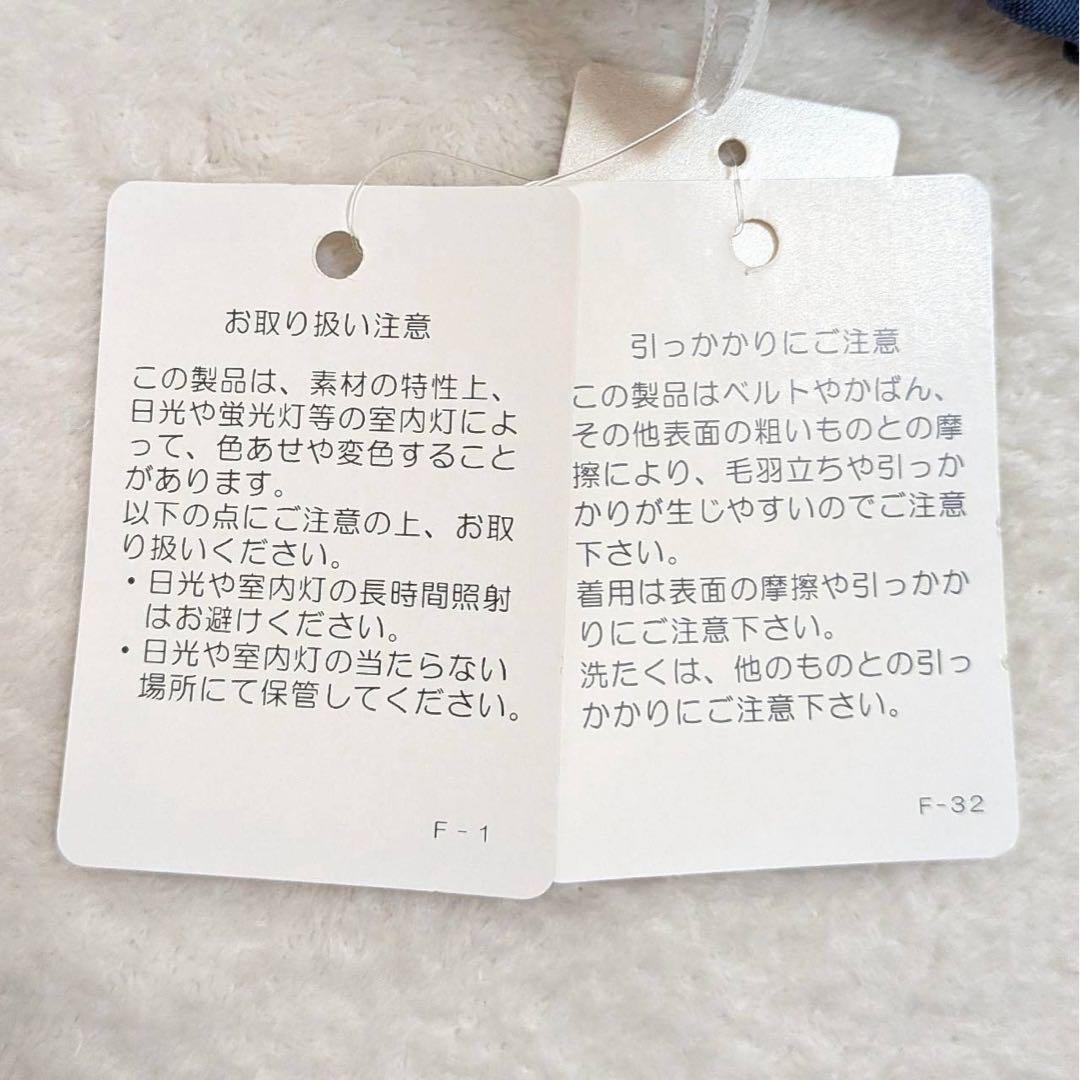 お取り扱い注意
この製品は、素材の特性上、
日光や蛍光灯等の室内灯によ
って、色あせや変色すること
があります。
以下の点にご注意の上、お取
り扱いください。
・日光や室内灯の長時間照射
はお避けください。
・日光や室内灯の当たらない
場所にて保管してください。
F-1
引っかかりにご注意
この製品はベルトやかばん、
その他表面の粗いものとの摩
擦により、毛羽立ちや引っか
かりが生じやすいのでご注意
下さい。
着用は表面の摩擦や引っかか
りにご注意下さい。
洗たくは、他のものとの引っ
かかりにご注意下さい。
F-32